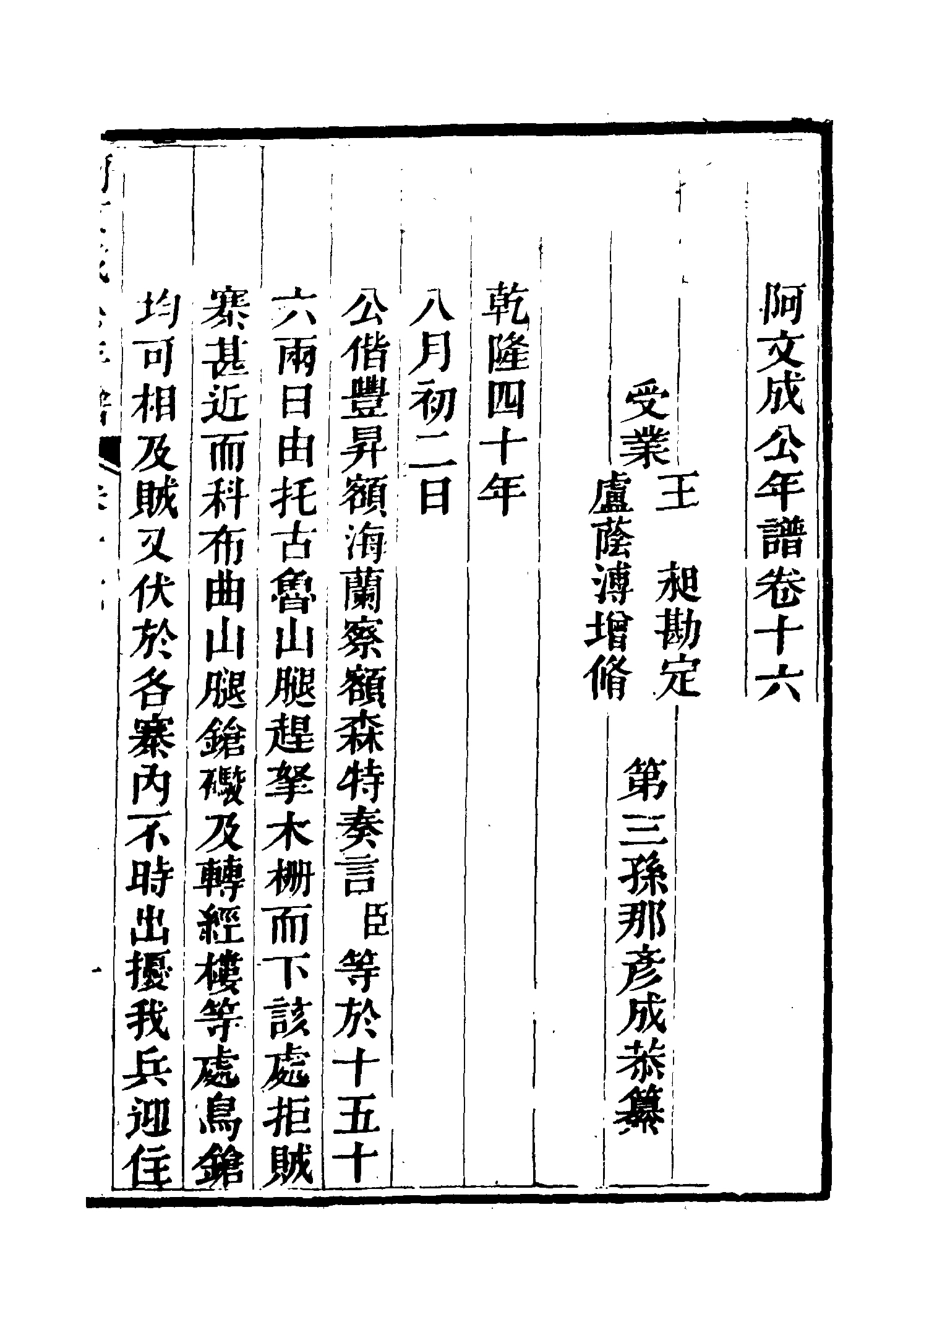 阿文成公年譜卷十六
第三孫那彥成恭纂
受業
王　昶勘定
盧蔭溥增脩
乾隆四十年
八月初二日
公偕豐昇額海蘭察額森特奏言臣等於十五十
六兩日由托古魯山腿趕拏木柵而下該處拒賊
寨甚近而科布曲山腿鎗礮及轉經樓等處鳥鎗
均可相及賊又伏於各寨內不時出擾我兵迎住